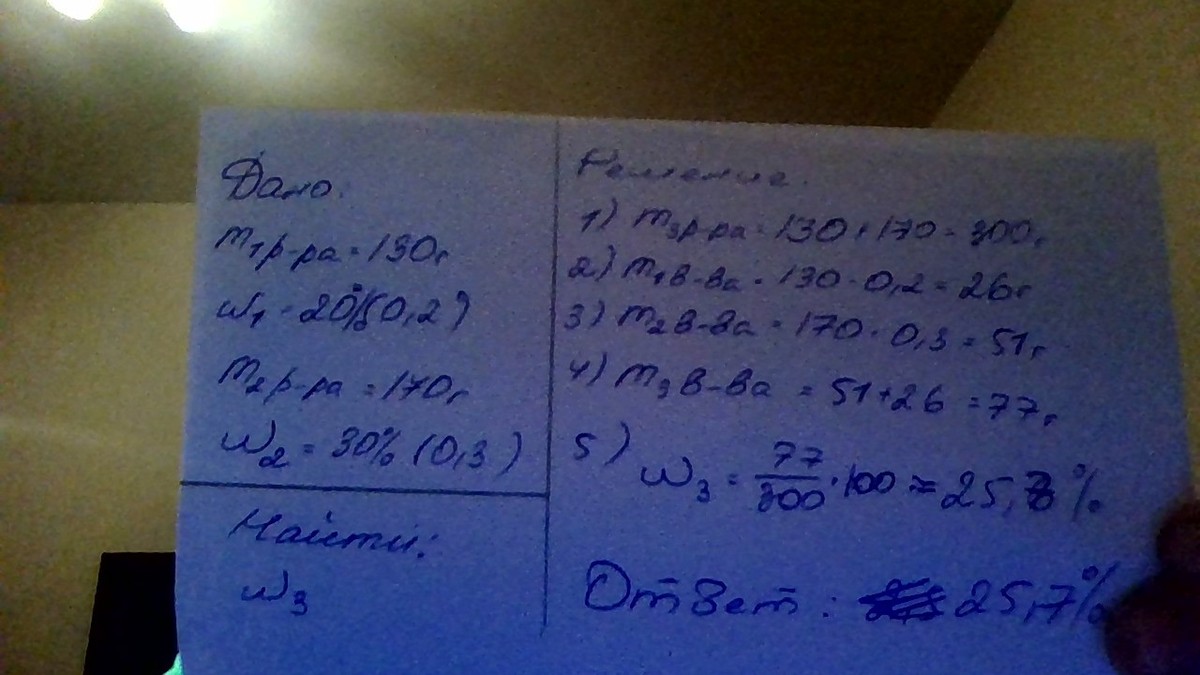 Дано:
m1р-ра = 130г
w1 = 20%(0,2)
m2р-ра = 170г
w2 = 30% (0,3)
Найти:
w3
Решение:
1) m3р-ра = 130+170 = 300г
2) m1в-ва = 130 · 0,2 = 26г
3) m2в-ва = 170 · 0,3 = 51г
4) m3в-ва = 51+26 = 77г
5) w3 = 77/300 · 100 ≈ 25,7%
Ответ: 25,7%